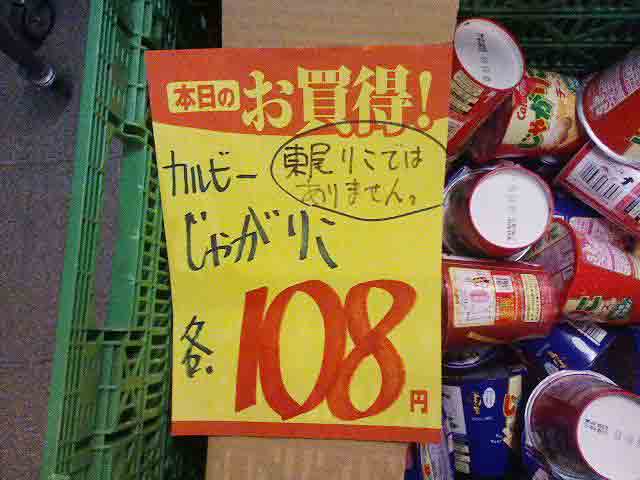 本日の お買得!
カルビー
東尾りこでは
ありません。
じゃがりこ
各. 108円
Calbee
じゃがり